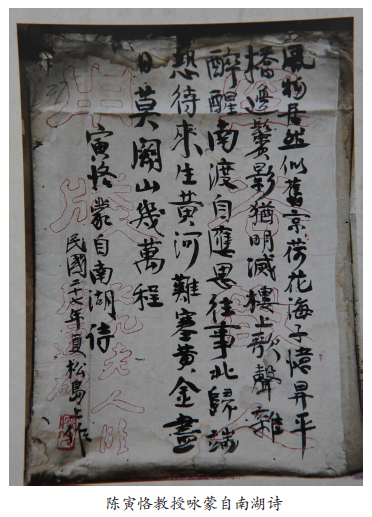 風物居然似舊京荷花海子憶昇平
橋邊鬢影猶明滅樓上歌聲雜
醉醒南渡自應思往事北歸端
恐待來生黃河難塞黃金盡
日莫關山幾萬程
寅恪蒙自南湖詩
民國二七年夏松島上作
陈寅恪教授咏蒙自南湖诗